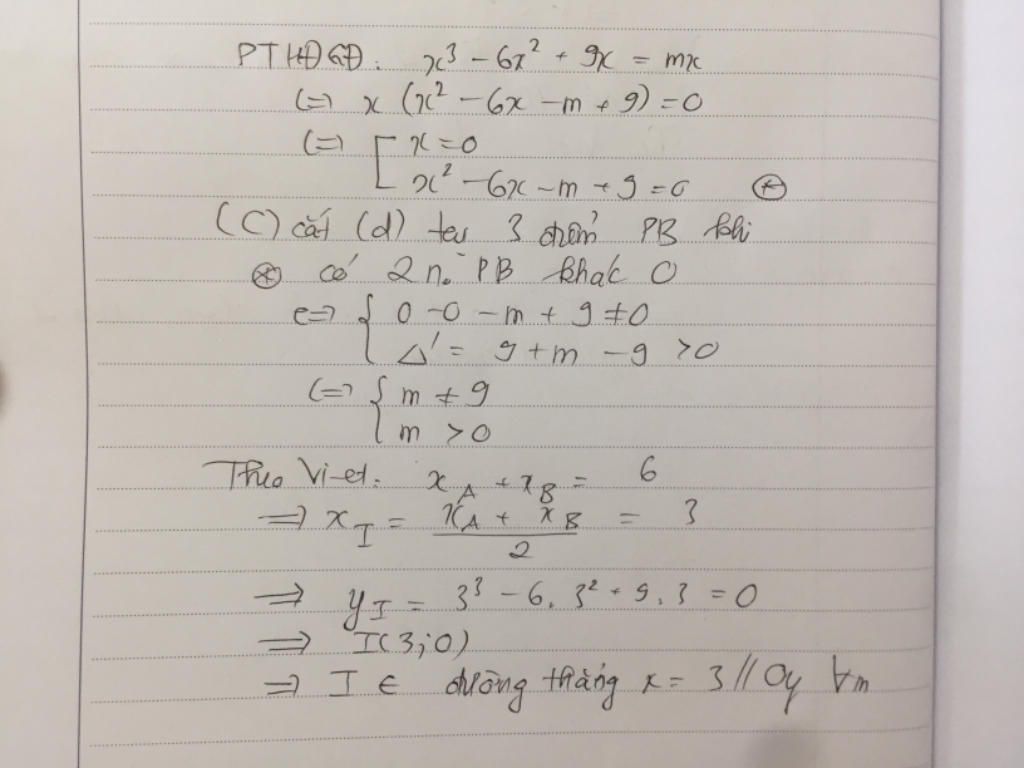 PTHĐGĐ: x³ - 6x² + 9x = mx
(=) x (x² - 6x - m + 9) = 0
(=) [ x = 0
x² - 6x - m + 9 = 0 (*)
(C) cắt (d) tại 3 điểm PB khi
(*) có 2 n₀ PB khác 0
(=) { 0 - 0 - m + 9 ≠ 0
Δ' = 9 + m - 9 > 0
(=) { m ≠ 9
m > 0
Theo Vi-et: x_A + x_B = 6
=> x_I = (x_A + x_B)/2 = 3
=> y_I = 3³ - 6. 3² + 9. 3 = 0
=> I(3;0)
=> I ∈ đường thẳng x = 3 // Oy ∀m